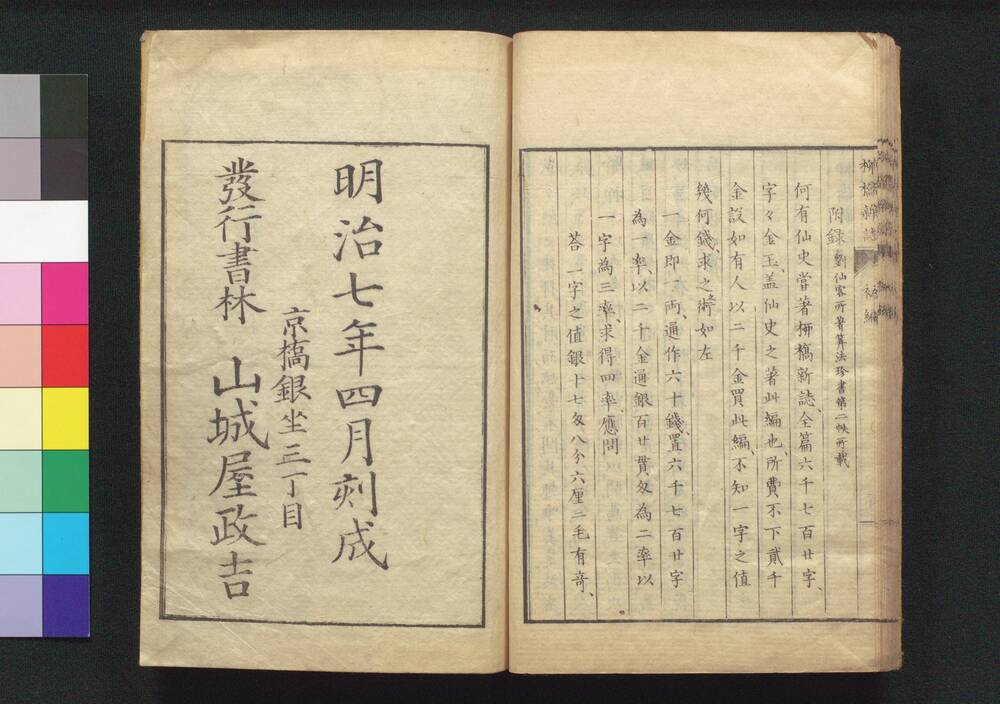 柳橋新誌 初編
附録 劉仙客所著算法珍書第二帙所載
何有仙史嘗著柳橋新誌、全篇六千七百廿字、
字々金玉、盖仙史之著此編也、所費不下貳千
金、設如有人以二千金買此編、不知一字之值
幾何錢、求之術如左
一金即一両、通作六十錢、置六千七百廿字
為一率、以二千金通銀百廿貫匁為二率以
一字為三率、求得四率、應問
荅 一字之值銀十七匁八分六厘二毛有竒、
明治七年四月刻成
京橋銀坐三丁目
發行書林 山城屋政吉